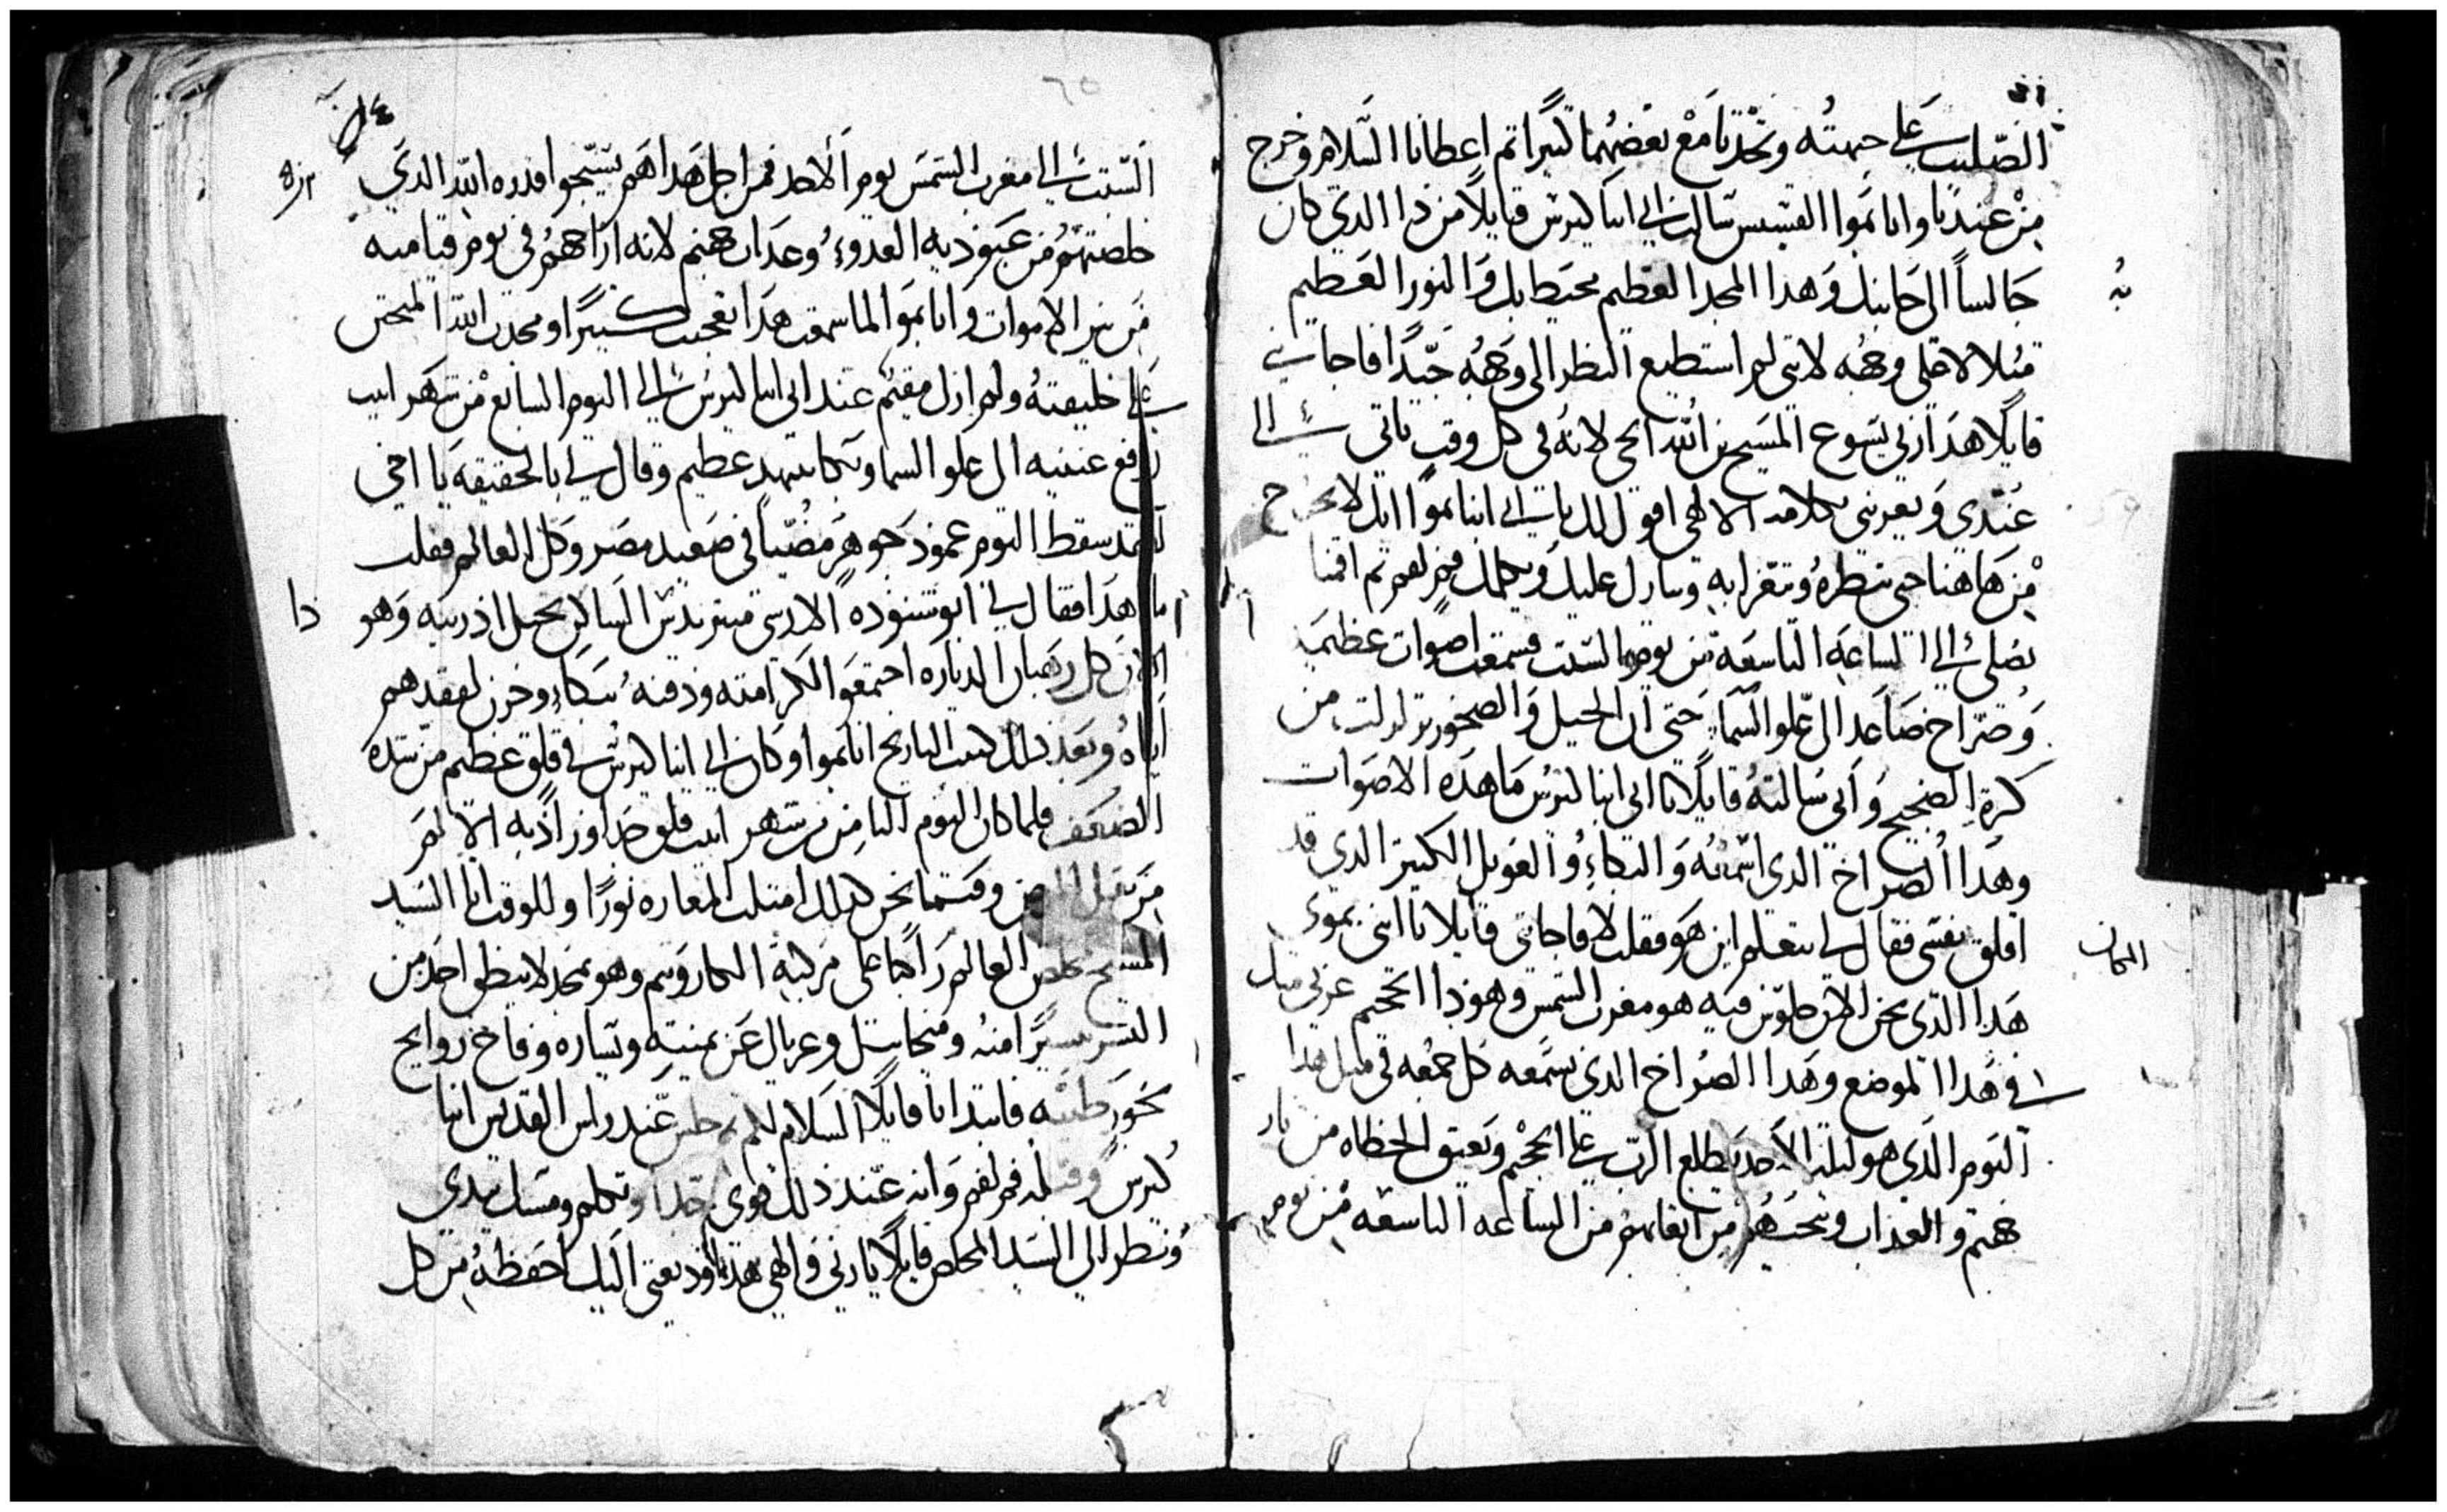 الصليب علي جبهته وتحدتا مع بعضهما كتيرا تم اعطانا السلام وخرج
من عندنا وانا بموا القسيس سالت ابي انبا كيرس قايلا من دا الدي كان
جالسا الي جانبك وهدا المجد العظيم محيط بك والنور العظيم
متلالا علي وجهه لانني لم استطيع النظر الي وجهه جيدا فاجابني
قايلا هدا ربي يسوع المسيح بن الله الحي لانه في كل وقت ياتي الي
عندي ويعزيني بكلامه الالهي اقول لك يا ابي انبا بموا انك لا تخرج
من هاهنا حتي تنظره وتتعزا به ويبارك عليك ويكلمك فم لفم تم اقمنا
نصلي الي الساعه التاسعه من يوم السبت فسمعت اصوات عظيمه
وصراخ صاعد الي علو السما حتي ان الجبل والصخور تزلزلت من
كترة الضجيج واني سالته قايلا يا ابي انبا كيرس ما هده الاصوات
وهدا الصراخ الدي اسمعه والبكاء والعويل الكتير الدي قد
اقلق نفسي فقال لي تعلم اين هو فقلت لا فاجابني قايلا يا ابني بموا
المكان
هدا الدي نحن الان جلوس فيه هو مغرب الشمس وهودا الجحيم غربي منك
في هدا الموضع وهدا الصراخ الدي تسمعه كل جمعه في متل هدا
اليوم الدي هو ليلة الاحد يطلع الرب علي الجحيم ويعتق الخطاه من نار
جهنم والعداب وينجيهم من اتعابهم من الساعه التاسعه من يوم
السبت الي مغرب الشمس يوم الاحد فمن اجل هدا هم يسبحوا قدره الله الدي
خلصتهم من عبوديه العدو وعداب جهنم لانه اراحهم في يوم قيامته
من بين الاموات وانا بموا لما سمعت هدا تعجبت كتيرا ومجدت الله المتحنن
علي خليقته ولم ازل مقيم عند ابي انبا كيرس الي اليوم السابع من شهر ابيب
رفع عينيه الي علو السما وبكا بتنهد عظيم وقال لي بالحقيقه يا اخي
لقد سقط اليوم عمود جوهر مضيا في صعيد مصر وكل العالم فقلت
ما هدا فقال لي ابو شنوده الارشي مندريدس الساكن بجبل ادريبه وهو
دا
الان كل رهبان الدياره اجتمعوا لكرامته ودفنه ببكاء وحزن لفقدهم
اياه وبعد دلك كتبت التاريخ انا بموا وكان ابي انبا كيرس في قلق عظيم من شدة
الضعف فلما كان اليوم التامن من شهر ابيب قلق جدا وزاد به الالم
من تقل المرض وفيما نحن كدلك امتلت المغاره نورا وللوقت اتا السيد
المسيح مخلص العالم راكبا علي مركبة الكاروبيم وهو بمجد لا ينطق احد من
البشر يسيرا منه وميخاييل وغبريال عن يمينه ويساره وفاح روايح
بخور طيبه فابتدانا قايلا السلام لكم تم جلس عند راس القديس انبا
كيرس وقبله فم لفم وانه عند دلك قوي جدا وتكلم ومسك يدي
ونظر الي السيد المخلص قايلا يا ربي والهي هده وديعتي اليك احفظه من كل